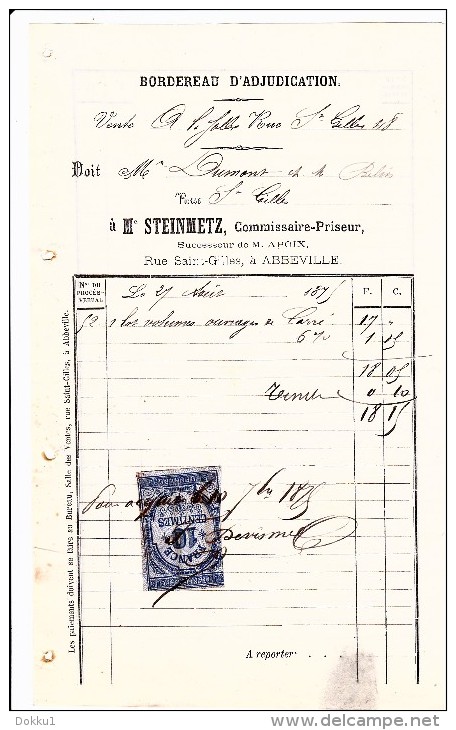 BORDEREAU D'ADJUDICATION.
Vente A la Salle Rue St Gilles 28
Doit Mr Dumont
Rue St Gilles
à Me STEINMETZ, Commissaire-Priseur,
Successeur de M. APOIX,
Rue Saint-Gilles, à ABBEVILLE.
No DU PROCÈS-VERBAL
Le 27 Août 1875 F. C.
52 1 lot volumes ouvrages de Carré 17 "
6 % 1 05
18 05
Timbre 0 10
18 15
Pour acquit le 10 7bre 1875
10 CENTIMES
FRANCE
Devismes
A reporter. . . .
Les paiements doivent se faire au Bureau, Salle des Ventes, rue Saint-Gilles, à Abbeville.
Dokku1
delcampe.net